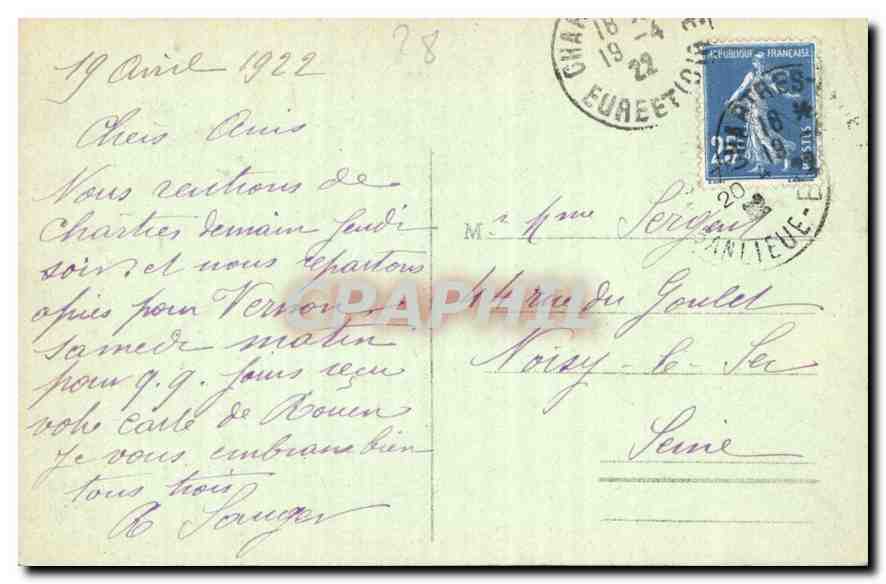 28
19 Avril 1922
Chers Amis
Nous rentrons de
Chartres demain Jeudi
soir et nous repartons
après pour Vernon
samedi matin
pour q.q. jours reçu
votre carte de Rouen
Je vous embrasse bien
tous trois
R
CHA
18
19 -4
22
EURE ET
REPUBLIQUE FRANÇAISE
25
POSTES
CHARTRES-
18 *
19 -4
20
BANLIEUE-B
M r Mme Sergent
14 rue du Goulet
Noisy-le-Sec
Seine
CPAPHIL